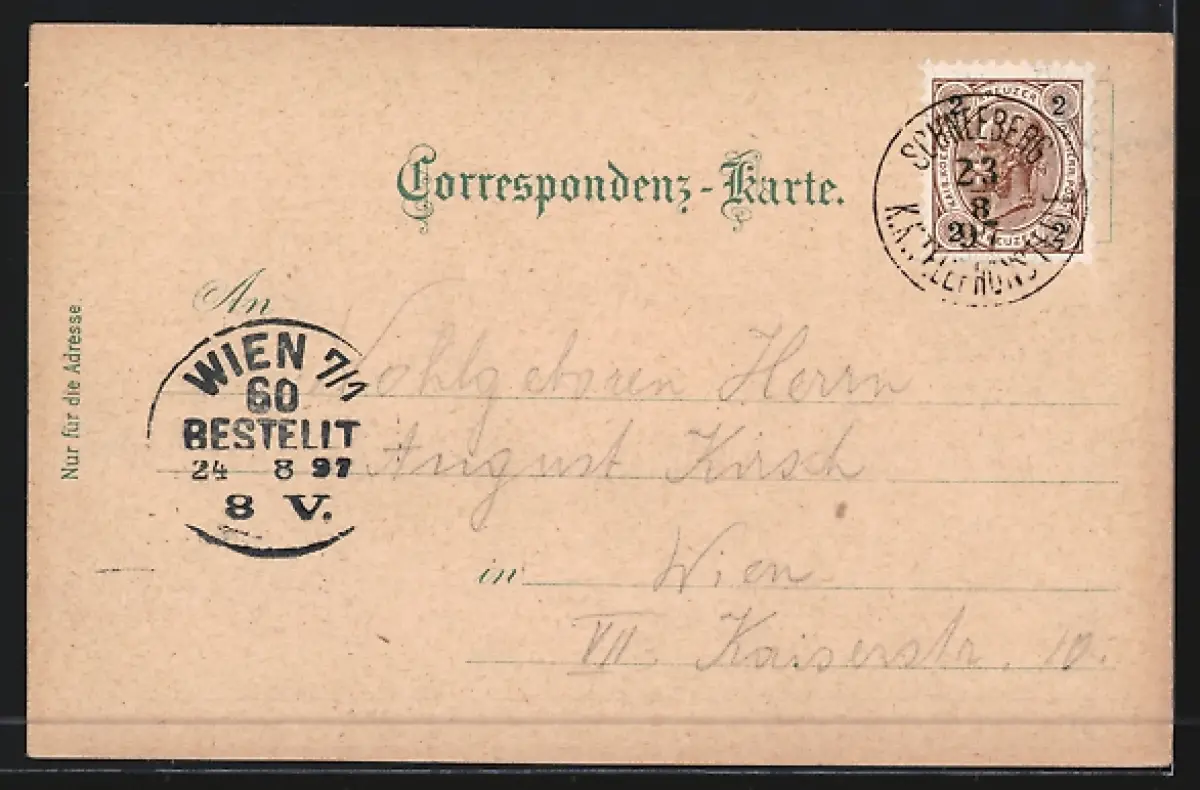 Correspondenz-Karte.
2 KREUZER 2
2 KREUZER 2
SCHNEEBERG
23
8
97
K.K. TELEFHONST
An
Nur für die Adresse.
WIEN 7/1
60
BESTELLT
24 8 97
8 V.
Wohlgeboren Herrn
August Kirsch
in Wien
VII. Kaiserstr. 10.